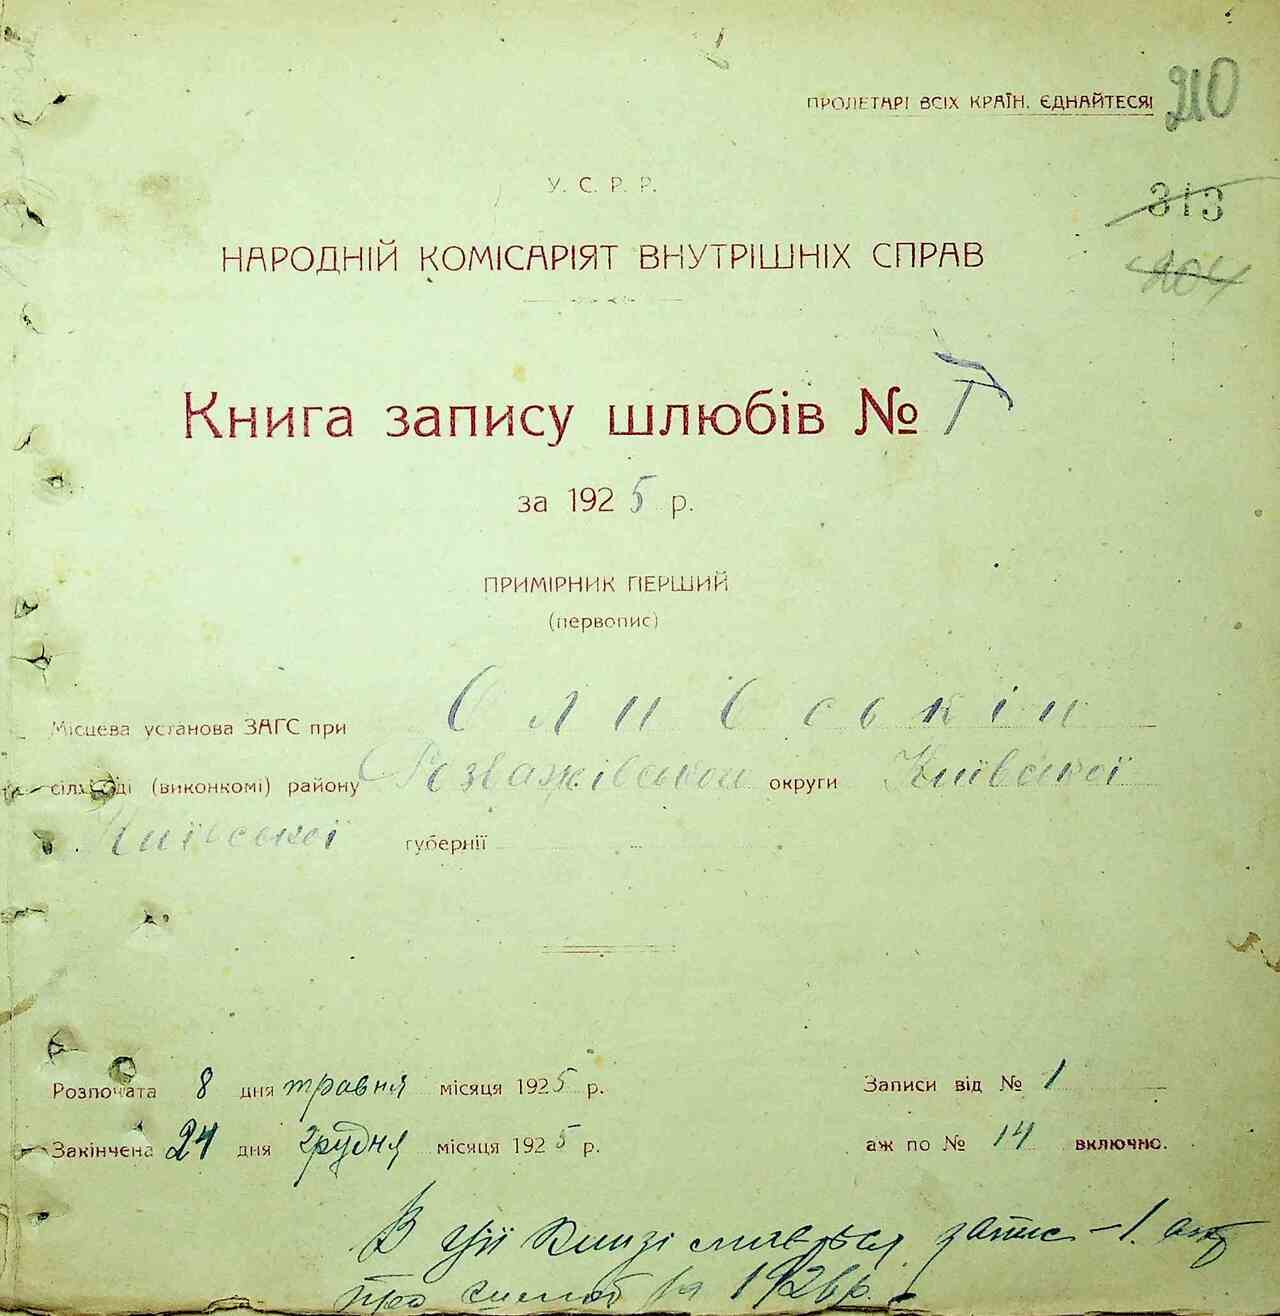 ПРОЛЕТАРІ ВСІХ КРАЇН, ЄДНАЙТЕСЯ!
210
У. С. Р. Р.
313
НАРОДНІЙ КОМІСАРІЯТ ВНУТРІШНІХ СПРАВ
204
Книга запису шлюбів № I
за 1925 р.
ПРИМІРНИК ПЕРШИЙ
(первопис)
Місцева установа ЗАГС при
сілхраді (виконкомі) району Розважівської округи Київської
Київської губернії
Розпочата 8 дня травня місяця 1925 р. Записи від № 1
Закінчена 24 дня грудня місяця 1925 р. аж по № 14 включно.
В цій книзі мається запис – 1. акт
про шлюб за 1926 р.